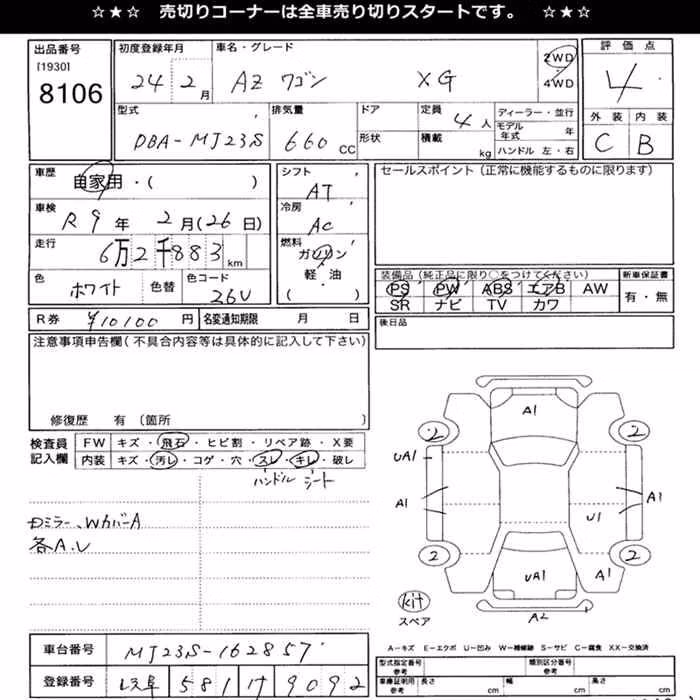 ☆★☆ 売切りコーナーは全車売り切りスタートです。 ☆★☆
出品番号
[1930]
8106
初度登録年月
24年 2月
車名・グレード
AZ ワゴン XG
2WD
4WD
評価点
4
外装 内装
C B
型式
DBA-MJ23S
排気量
660 CC
ドア
形状
定員
4人
積載
kg
ディーラー・並行
モデル年式 年
ハンドル 左・右
車歴
自家用・( )
車検
R9年 2月(26日)
走行
6万2千883km
色
ホワイト
色替
色コード
26U
シフト
AT
冷房
AC
燃料
ガソリン
軽・油
( ・ )
セールスポイント(正常に機能するものに限ります)
装備品(純正品に限り○をつけてください)
PS PW ABS エアB AW
SR ナビ TV カワ
新車保証書
有・無
R券 ¥10100 円
名変通知期限 月 日
後日品
注意事項申告欄(不具合内容等は具体的に記入して下さい)
修復歴 有〔箇所 〕
検査員
記入欄
FW キズ・飛石・ヒビ割・リペア跡・X要
内装 キズ・汚レ・コゲ・穴・スレ・キレ・破レ
ハンドル シート
ミラー、WカバーA
各A.U
A1
2 2
UA1
A1 A1
U1
2 2
UA1 A1
A2
kit
スペア
A-キズ E-エクボ U-凹み W-補修跡 S-サビ C-腐食 XX-交換済
車台番号
MJ23S-162857
登録番号
岐阜 581 け 9092
型式指定番号
参考
類別区分番号
参考
車庫証明用
参考
長さ cm
幅 cm
高さ cm